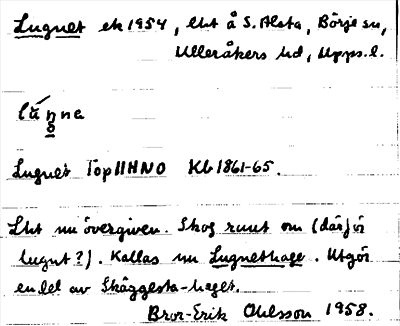 Lugnet ek 1954, lht å S. Alsta, Börje sn,
Ulleråkers hd, Upps. l.
Lugnet Top IIHNO Kb 1861-65.
Lht nu övergiven. Skog runt om (därför
lugnt?). Kallas nu Lugnethage. Utgör
en del av Skäggesta-haget.
Bror-Erik Ohlsson 1958.